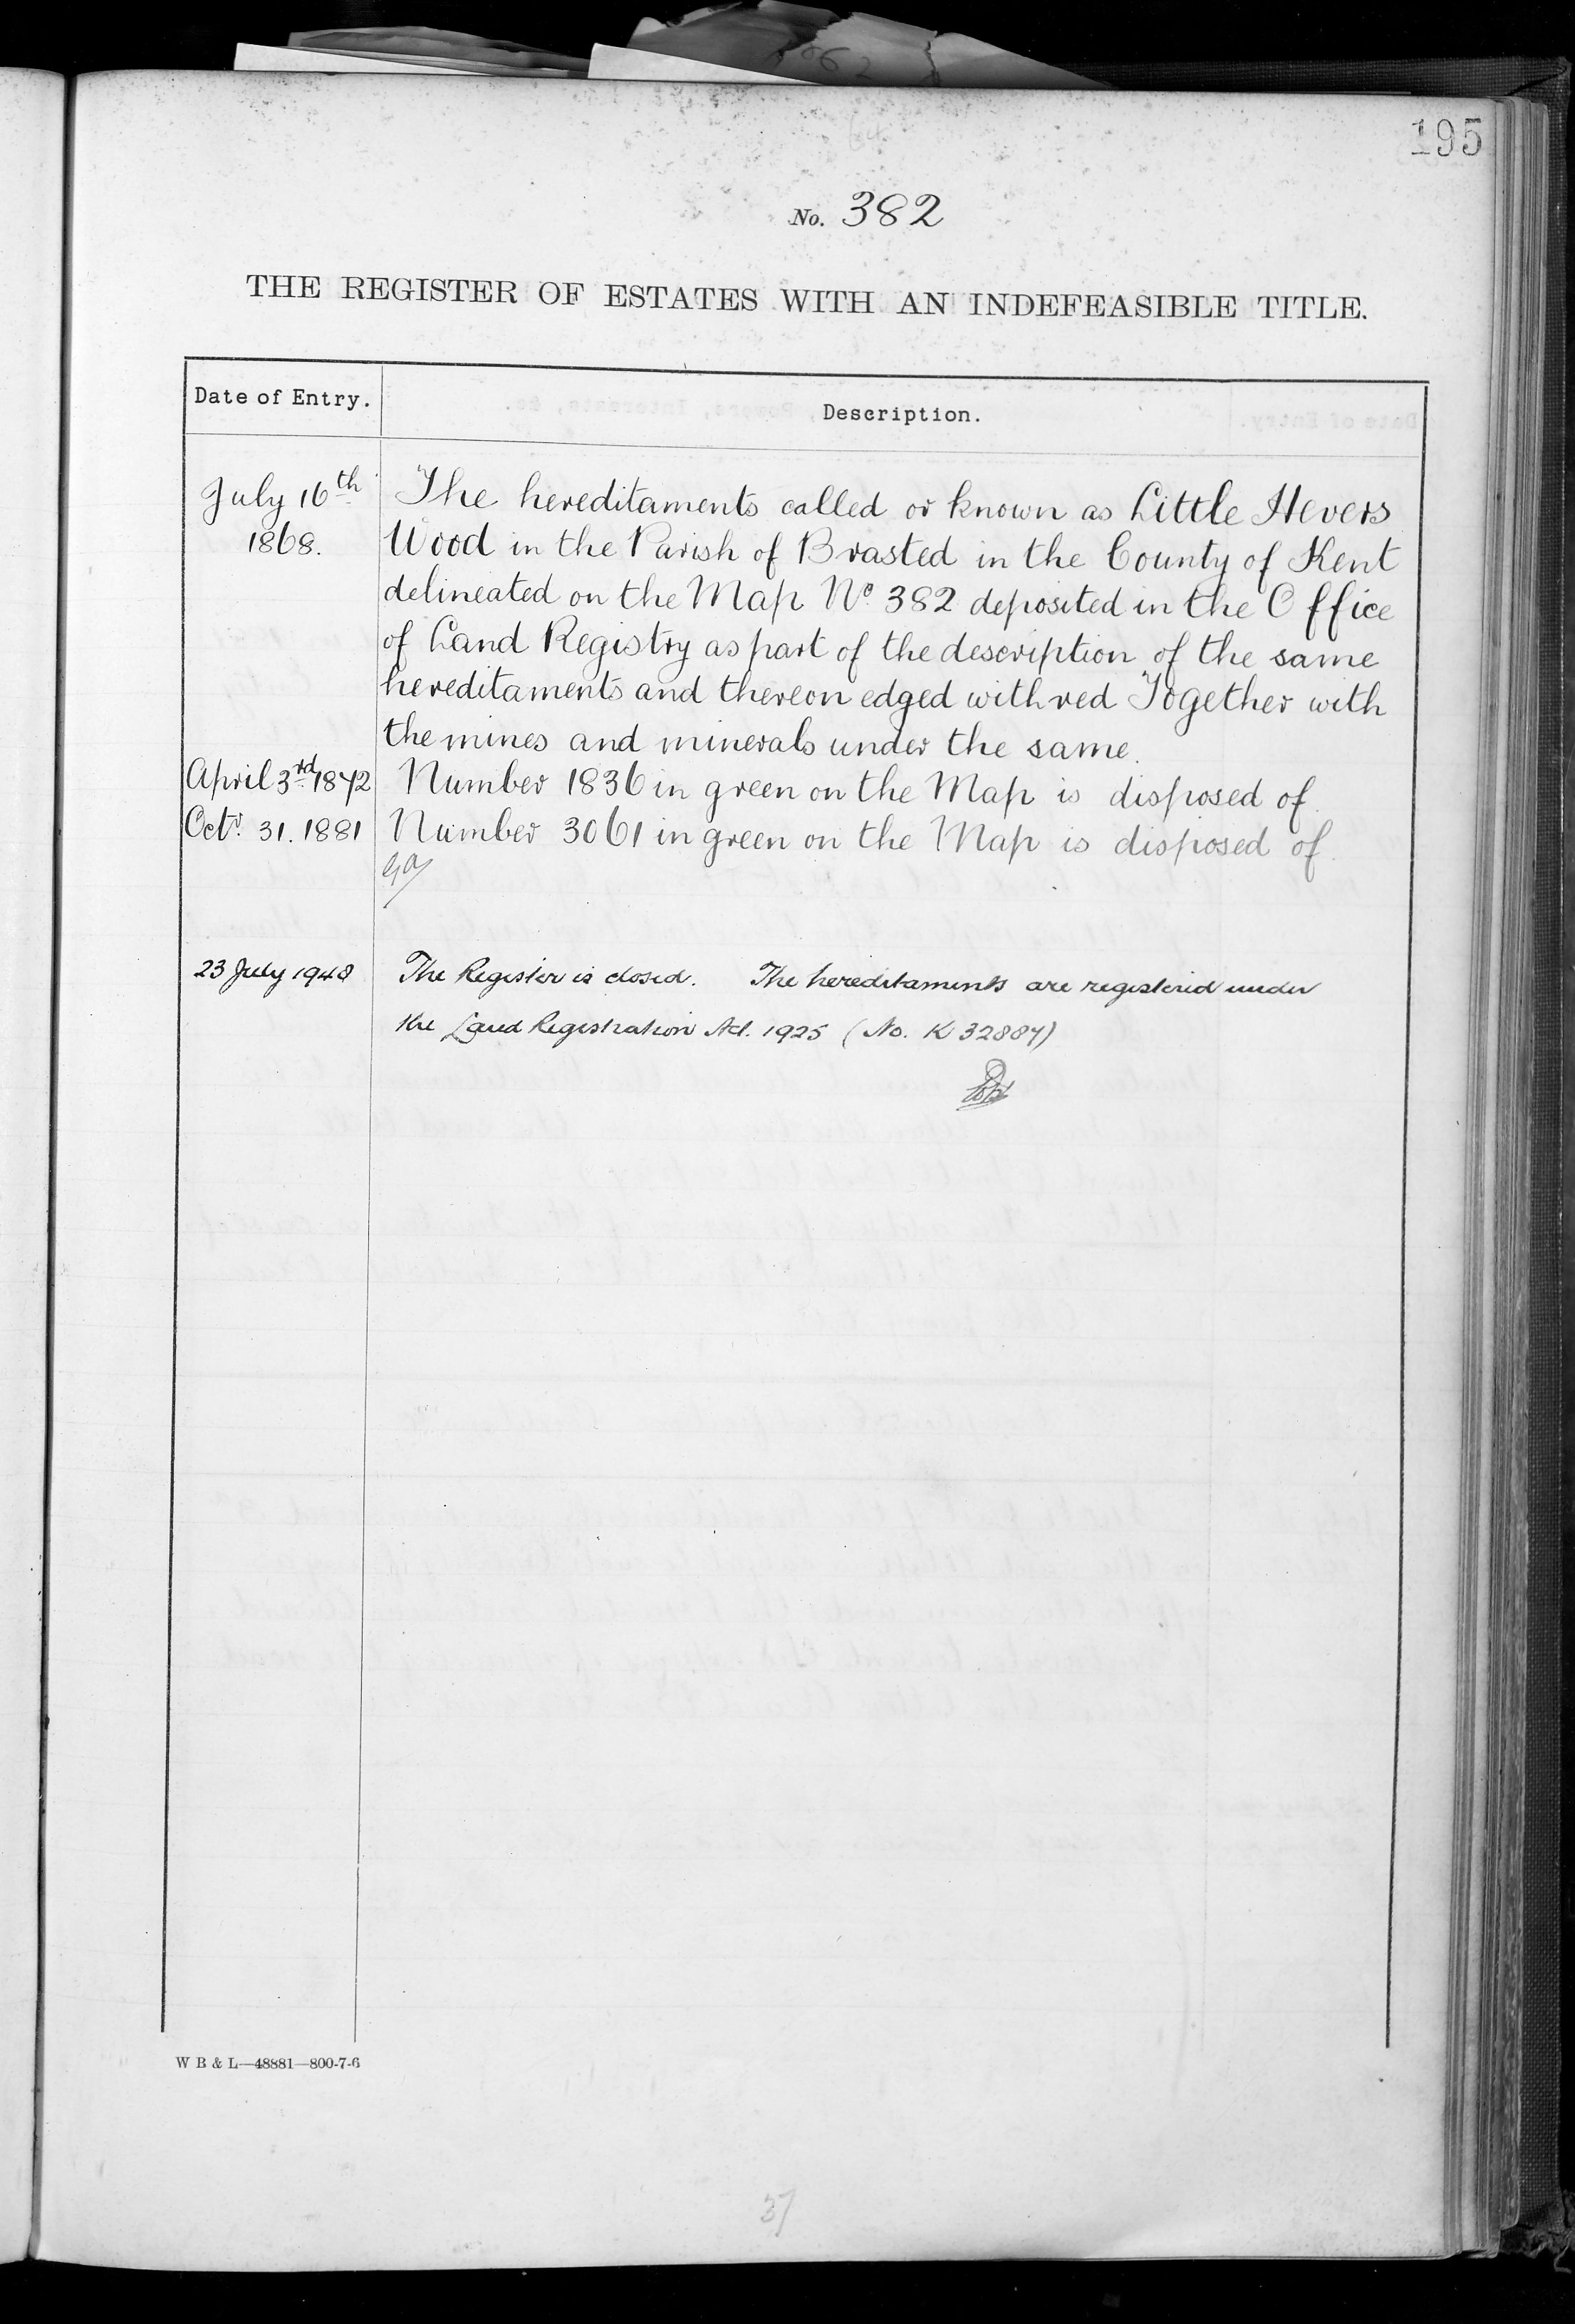 195
No. 382
THE REGISTER OF ESTATES WITH AN INDEFEASIBLE TITLE.
Date of Entry.
Description.
July 16th 1868.
The hereditaments called or known as Little Hevers
Wood in the Parish of Brasted in the County of Kent
delineated on the Map No. 382 deposited in the Office
of Land Registry as part of the description of the same
hereditaments and thereon edged with red Together with
the mines and minerals under the same.
April 3rd 1872 Number 1836 in green on the Map is disposed of.
Octr. 31. 1881 Number 3061 in green on the Map is disposed of.
23 July 1948 The Register is closed. The hereditaments are registered under
the Land Registration Act. 1925 (No. K 32887)
W B & L—48881—800-7-6
37